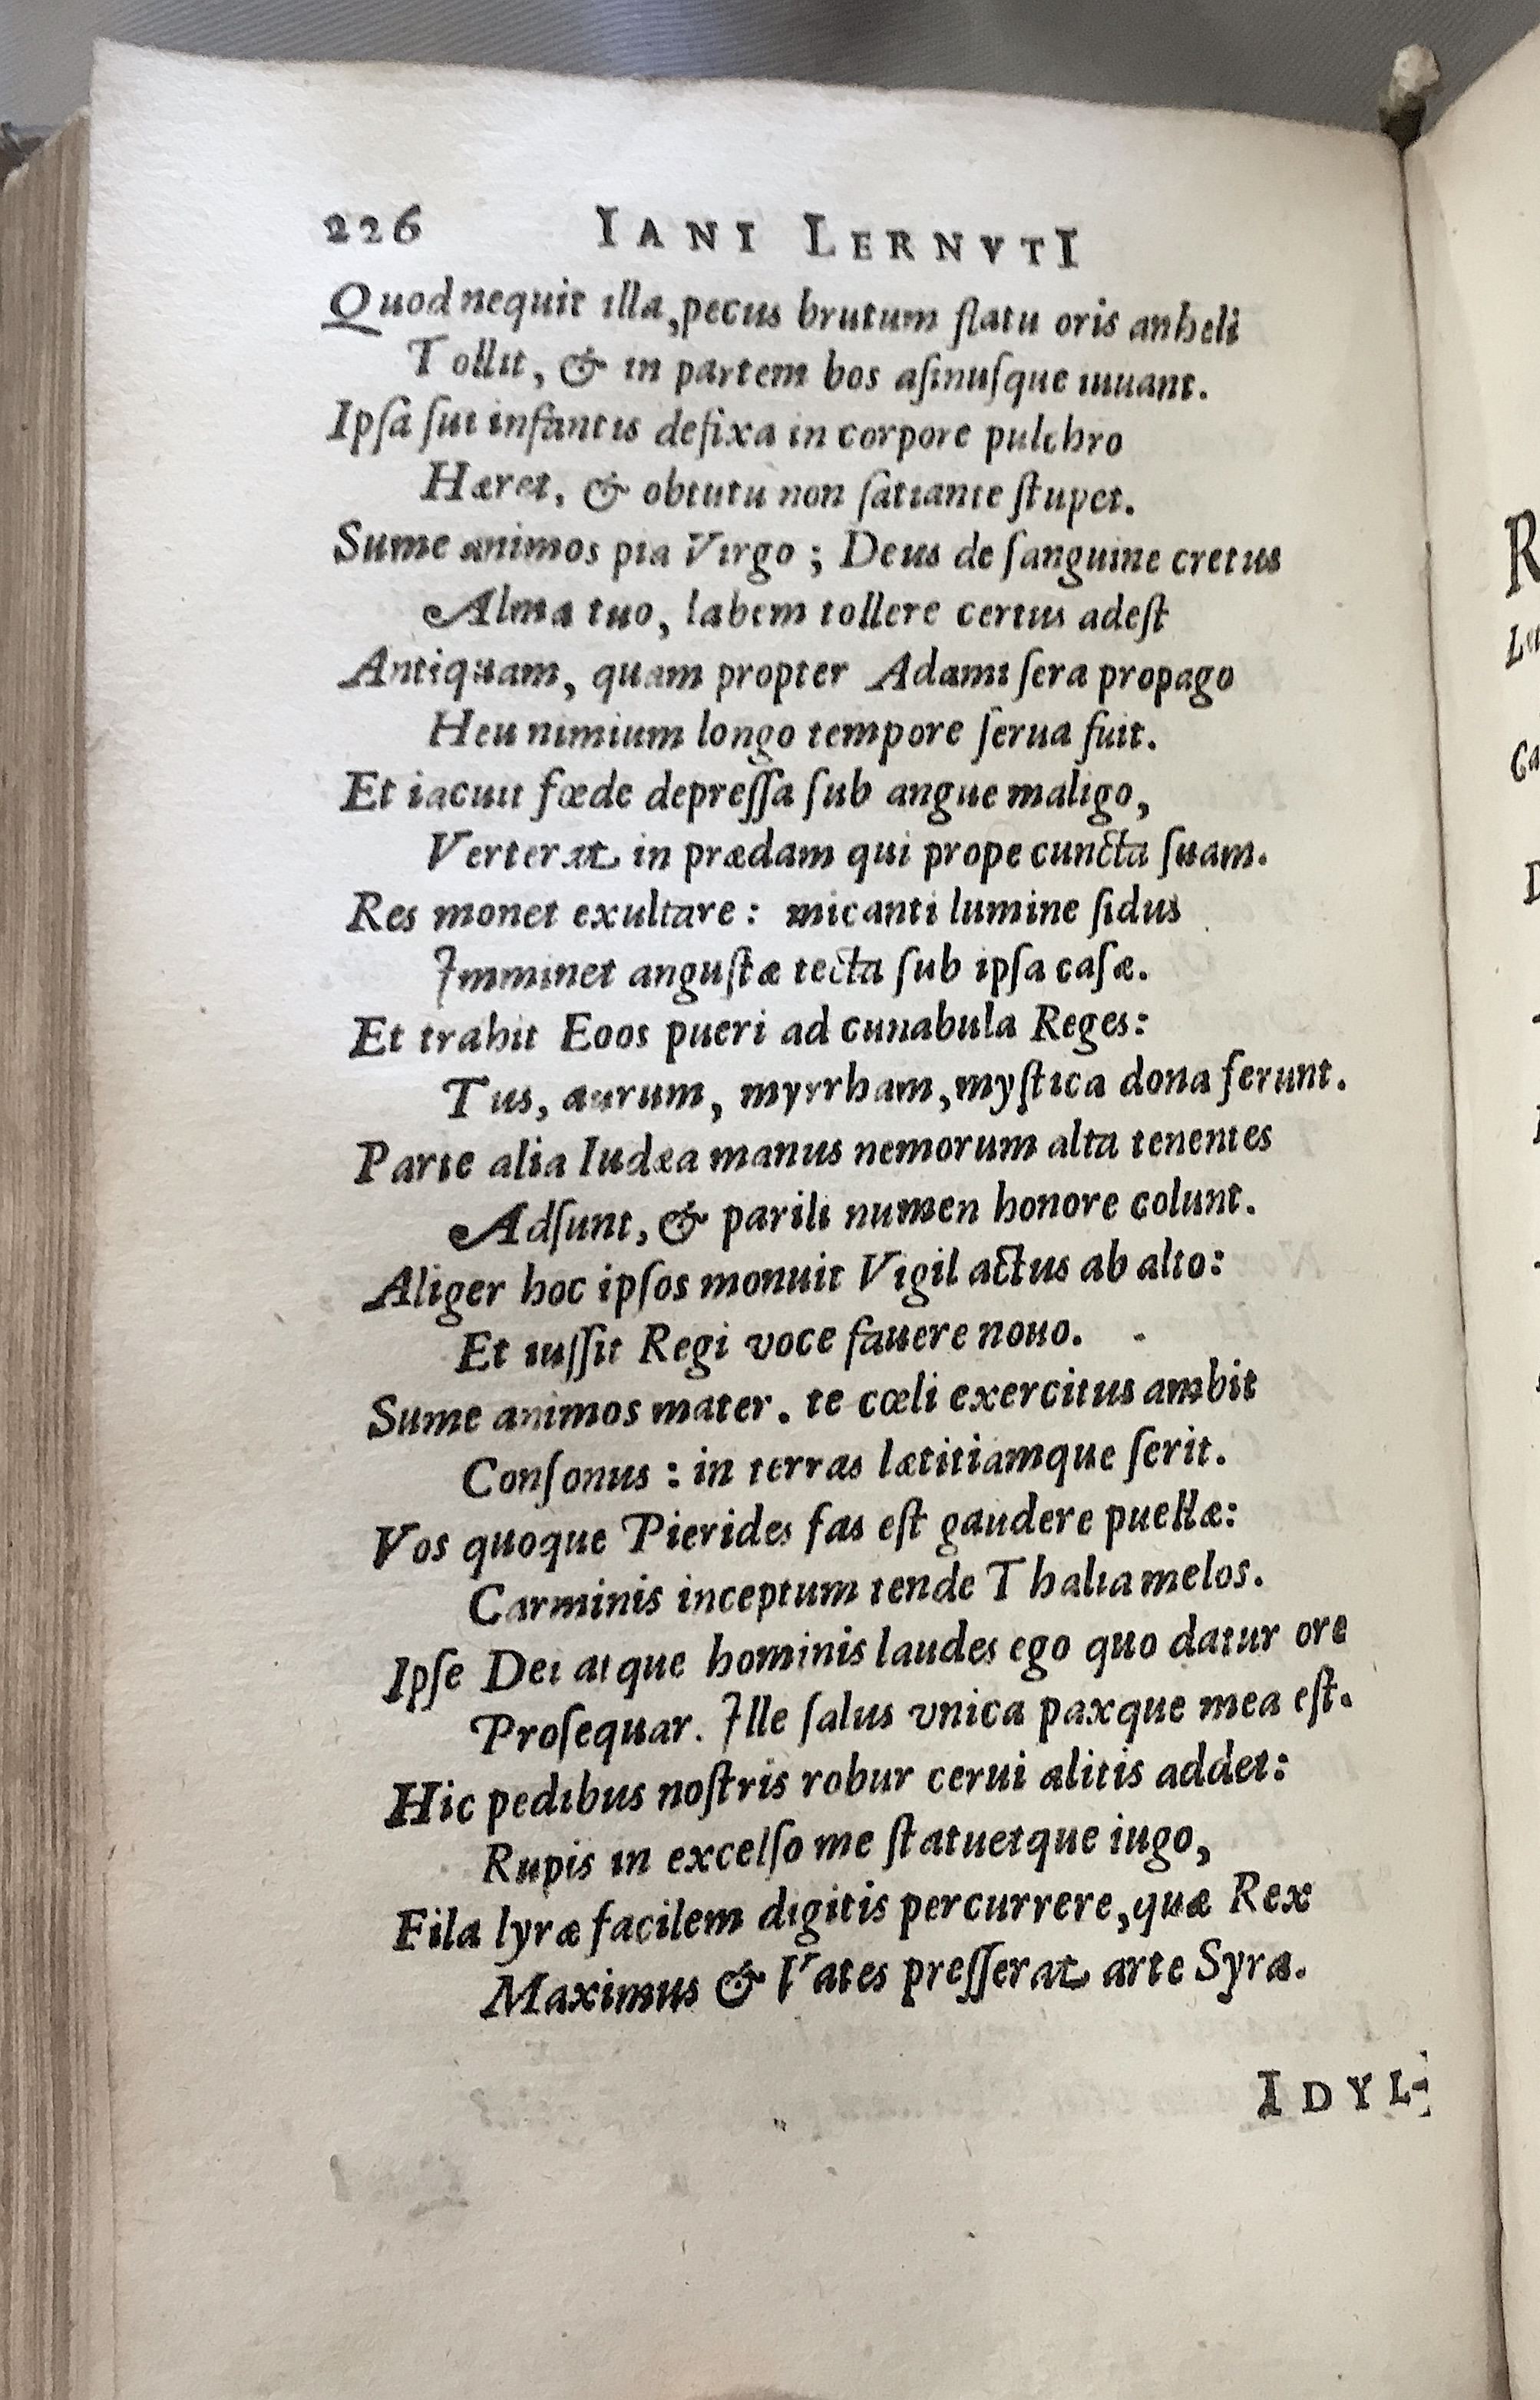 226 IANI LERNVTI
Quod nequit illa, pecus brutum flatu oris anheli
Tollit, & in partem bos aſinuſque iuuant.
Ipſa ſui infantis defixa in corpore pulchro
Hæret, & obtutu non ſatiante ſtupet.
Sume animos pia Virgo ; Deus de ſanguine cretus
Alma tuo, labem tollere certus adeſt
Antiquam, quam propter Adami ſera propago
Heu nimium longo tempore ſerua fuit.
Et iacuit fœde depreſſa ſub angue maligo,
Verterat in prædam qui prope cuncta ſuam.
Res monet exultare : micanti lumine ſidus
Imminet anguſtæ tecta ſub ipſa caſæ.
Et trahit Eoos pueri ad cunabula Reges:
Tus, aurum, myrrham, myſtica dona ferunt.
Parte alia Iudæa manus nemorum alta tenentes
Adſunt, & parili numen honore colunt.
Aliger hoc ipſos monuit Vigil actus ab alto:
Et iuſſit Regi voce fauere nouo.
Sume animos mater. te cœli exercitus ambit
Conſonus : in terras lætitiamque ſerit.
Vos quoque Pierides fas eſt gaudere puellæ:
Carminis inceptum tende Thalia melos.
Ipſe Dei atque hominis laudes ego quo datur ore
Proſequar. Ille ſalus vnica paxque mea eſt.
Hic pedibus noſtris robur cerui alitis addet:
Rupis in excelſo me ſtatuetque iugo,
Fila lyræ facilem digitis percurrere, quæ Rex
Maximus & Vates preſſerat arte Syra.
IDYL-